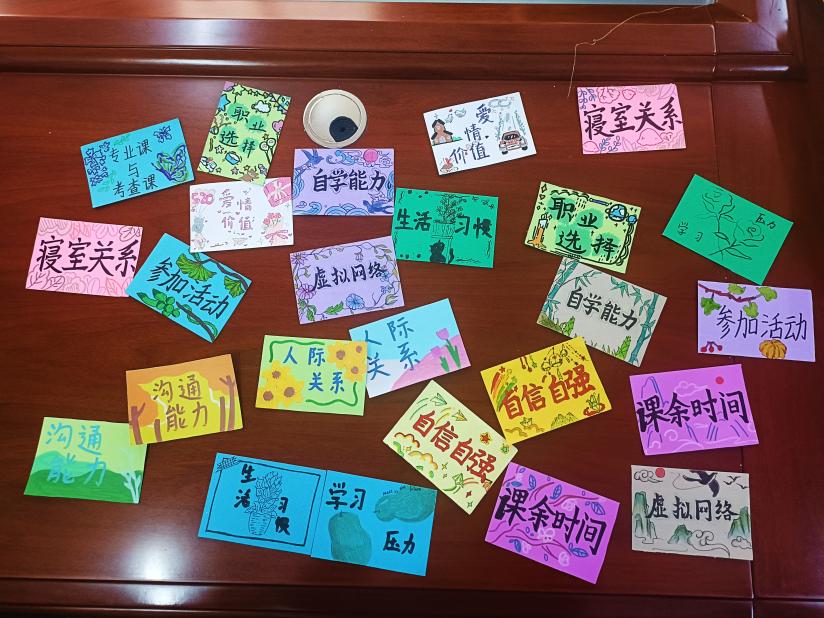 专业课
与
考查课
职业
选择
爱
情
价值
寝室关系
自学能力
520
爱情
价值
生活习惯
职业
选择
压力
学习
寝室关系
参加活动
虚拟网络
自学能力
参加活动
人际
关系
人际
关系
沟通
能力
自信自强
课余时间
自信自强
沟通
能力
生
活习
惯
学习
压力
课余时间
虚拟网络